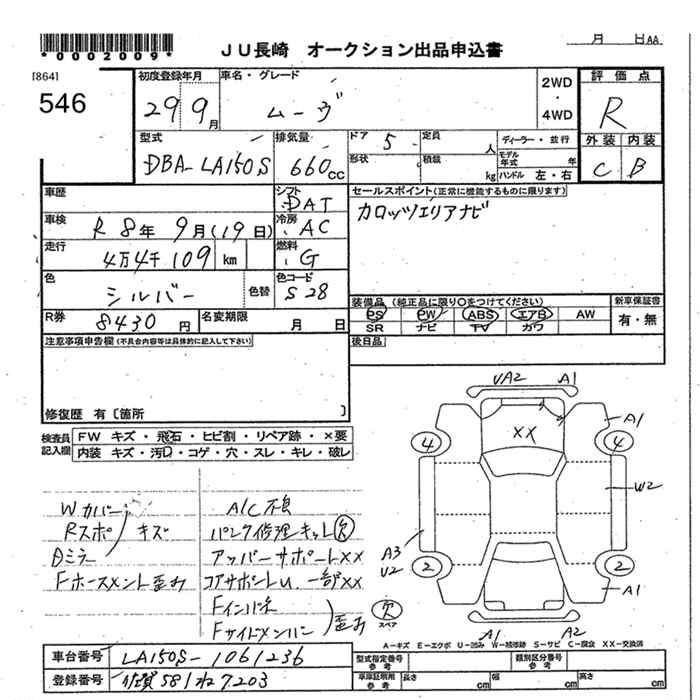 *0002009*
JU長崎 オークション出品申込書
月 日AA
[864]
546
初度登録年月
29 9月
車名・グレード
ムーヴ
2WD
・
4WD
評価点
R
型式
DBA-LA150S
排気量
660cc
ドア 5
形状
定員 人
積載 kg
ディーラー・並行
モデル年式 年
ハンドル 左・右
外装 内装
C B
車歴
シフト
DAT
セールスポイント(正常に機能するものに限ります)
カロッツェリアナビ
車検
R8年 9月(19日)
冷房
AC
走行
4万4千109 km
燃料
G
色
シルバー 色替
色コード
S28
装備品(純正品に限り○をつけてください)
新車保証書
PS PW ABS エアB AW
SR ナビ TV カワ
有・無
R券
8430円
名変期限
月 日
後日品
注意事項申告欄(不具合内容等は具体的に記入して下さい)
修復歴 有〔箇所 〕
検査員記入欄
FW キズ・飛石・ヒビ割・リペア跡・×要
内装 キズ・汚れ・コゲ・穴・スレ・キレ・破レ
Wカバー
Rスポ キズ
Dミラー
Fホースメント歪み
A/C不良
パンク修理キット欠
アッパーサポートXX
コアサポートU. 一部XX
Fインパネ
Fサイドメンバー 歪み
UA2 A1
A1
XX
4 4
W2
A3
U2
2 2
A1
欠
スペア
A1 A2
A-キズ E-エクボ U-凹み W-補修跡 S-サビ C-腐食 XX-交換済
車台番号
LA150S-1061236
登録番号
佐賀581ね7203
型式指定番号
参考
類別区分番号
参考
車庫証明用
参考
長さ cm
幅 cm
高さ cm